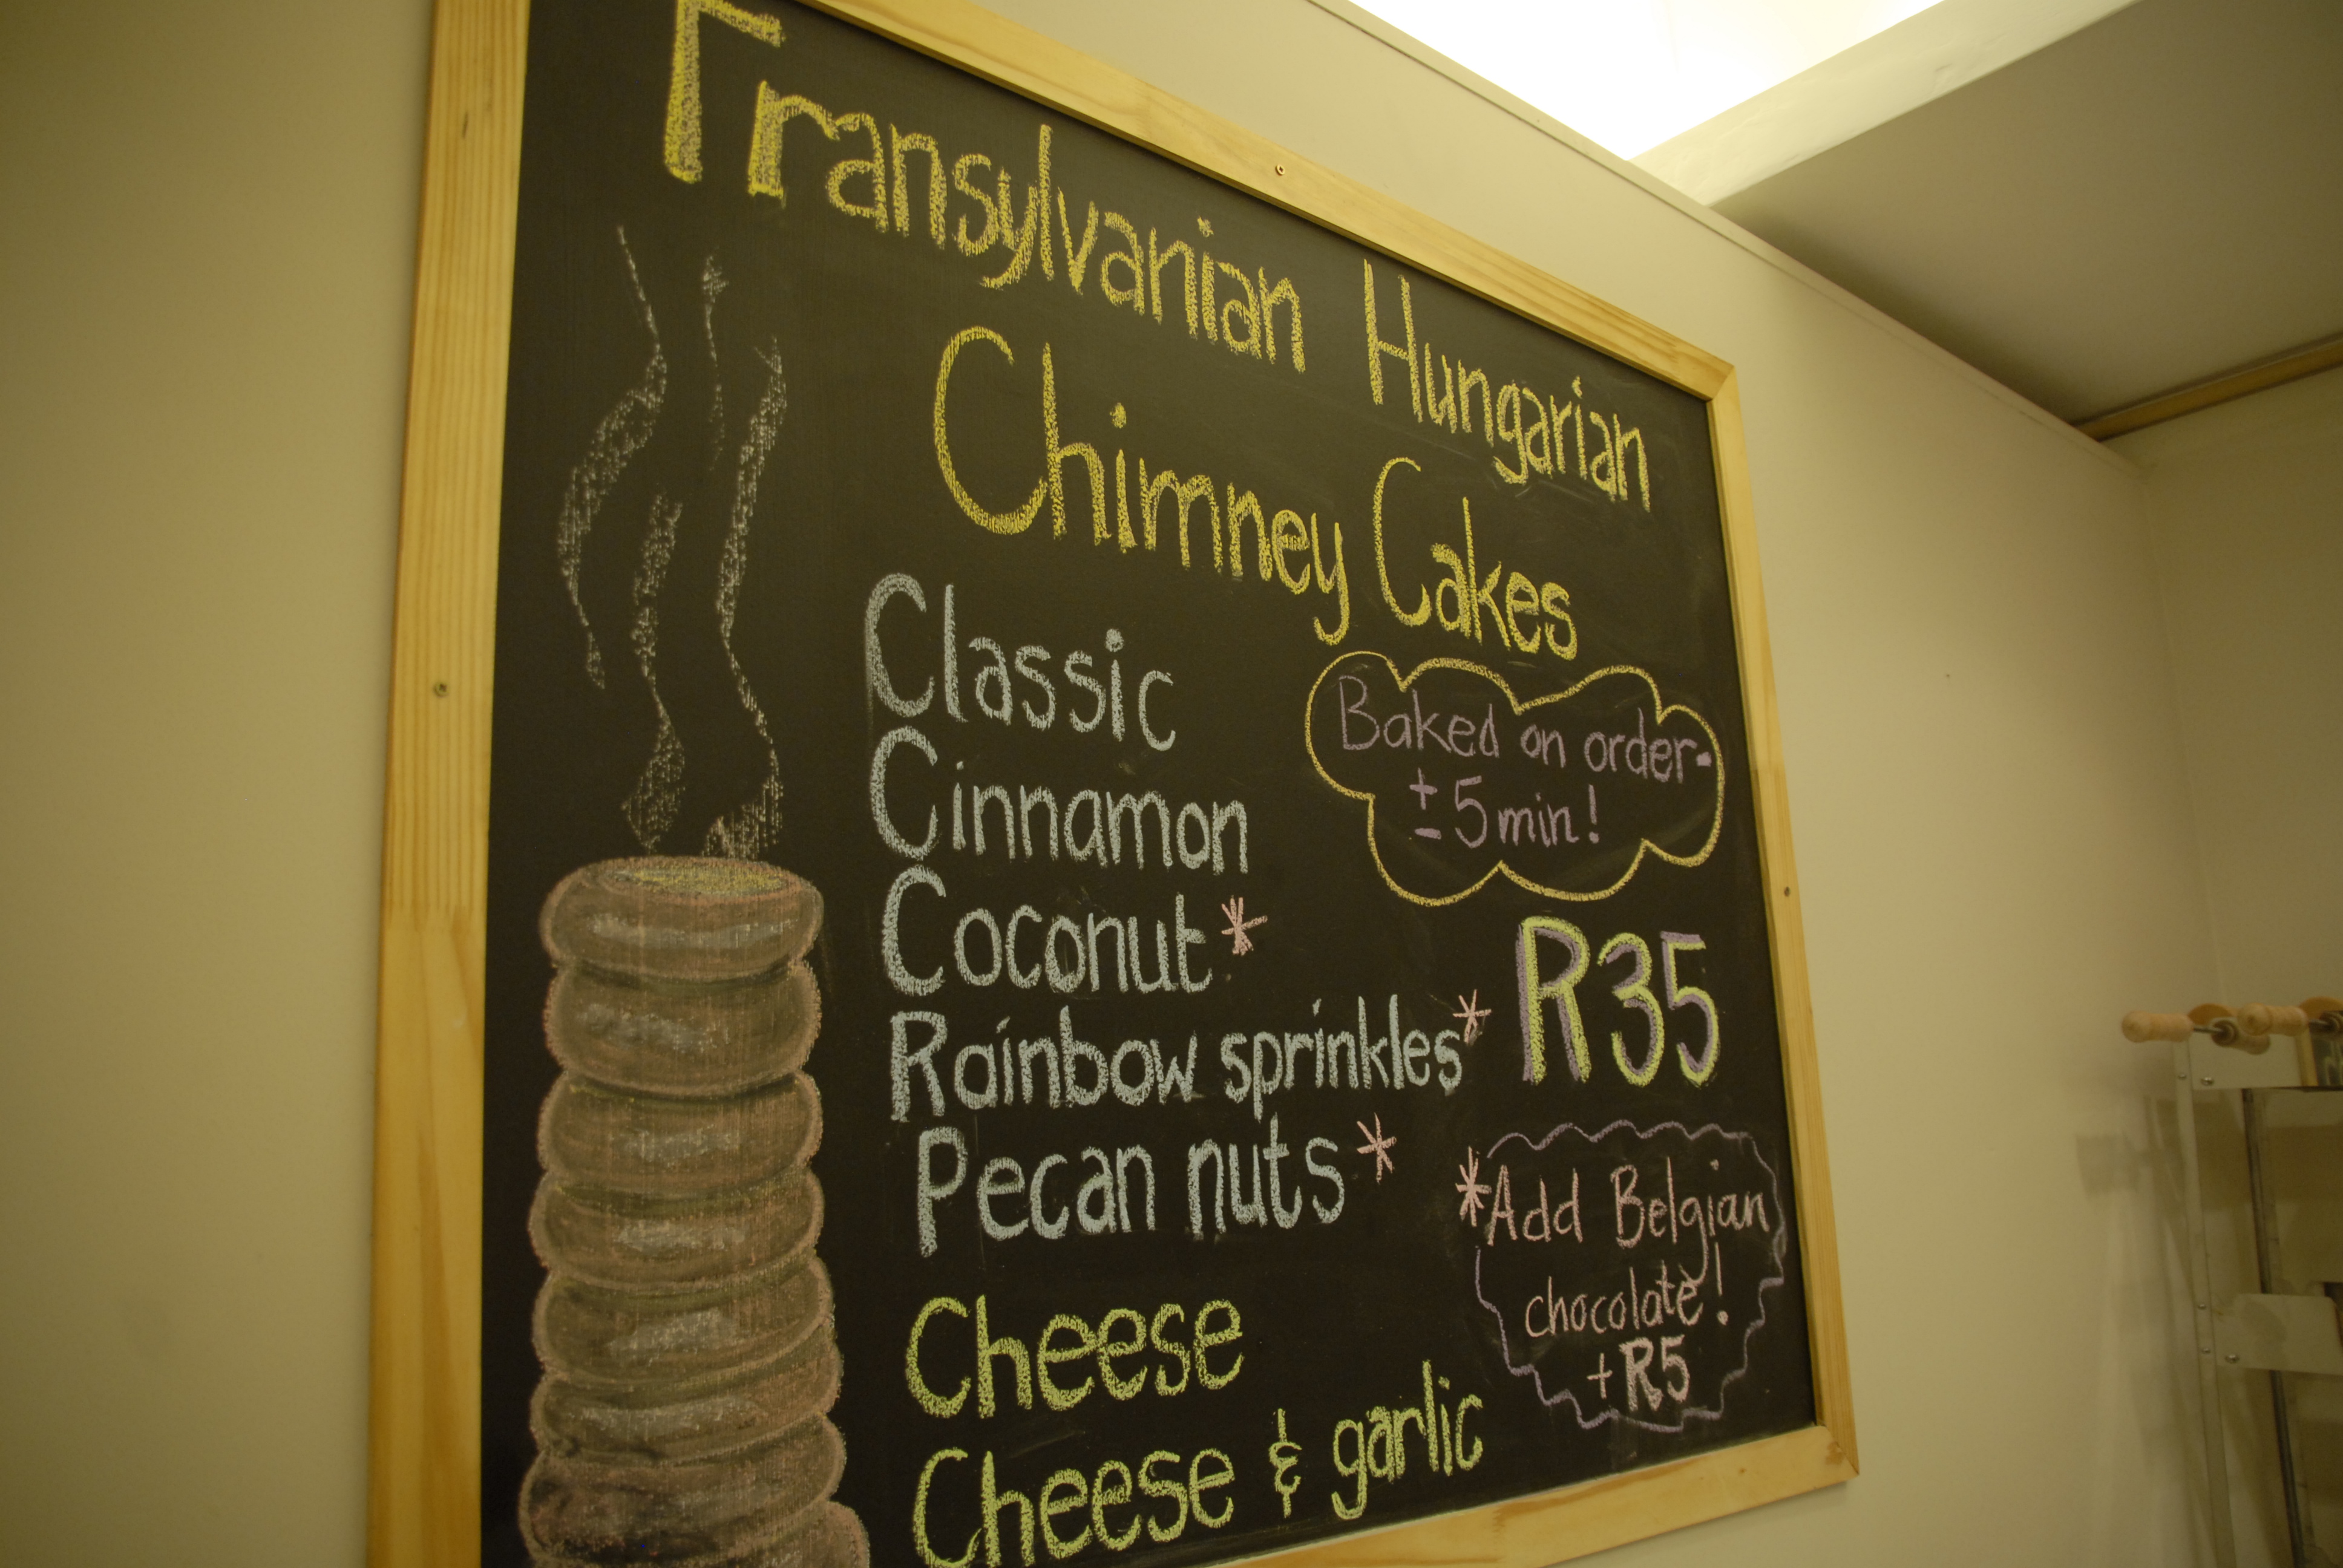 Transylvanian Hungarian
Chimney Cakes
Classic
Cinnamon
Coconut*
Rainbow sprinkles*
Pecan nuts*
Cheese
Cheese & garlic
Baked on order-
± 5min!
R35
*Add Belgian
chocolate!
+R5